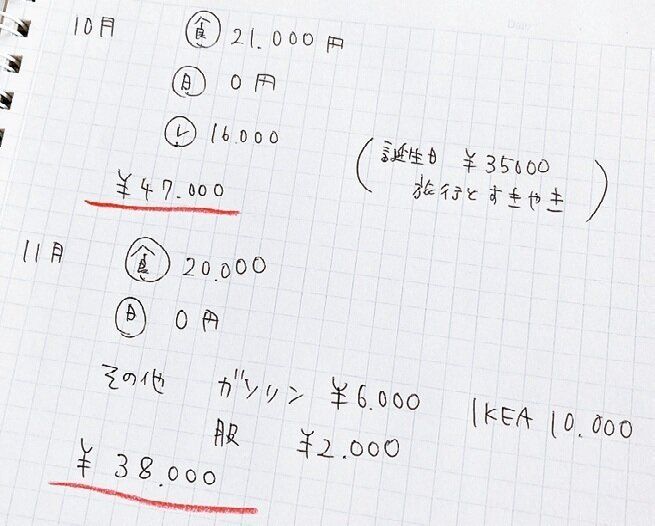 10月 食 21.000円
日 0円
レ 16.000
(誕生日 ¥35000
旅行とすきやき)
¥47.000
11月 食 20.000
日 0円
その他 ガソリン ¥6.000 IKEA 10.000
服 ¥2.000
¥38.000